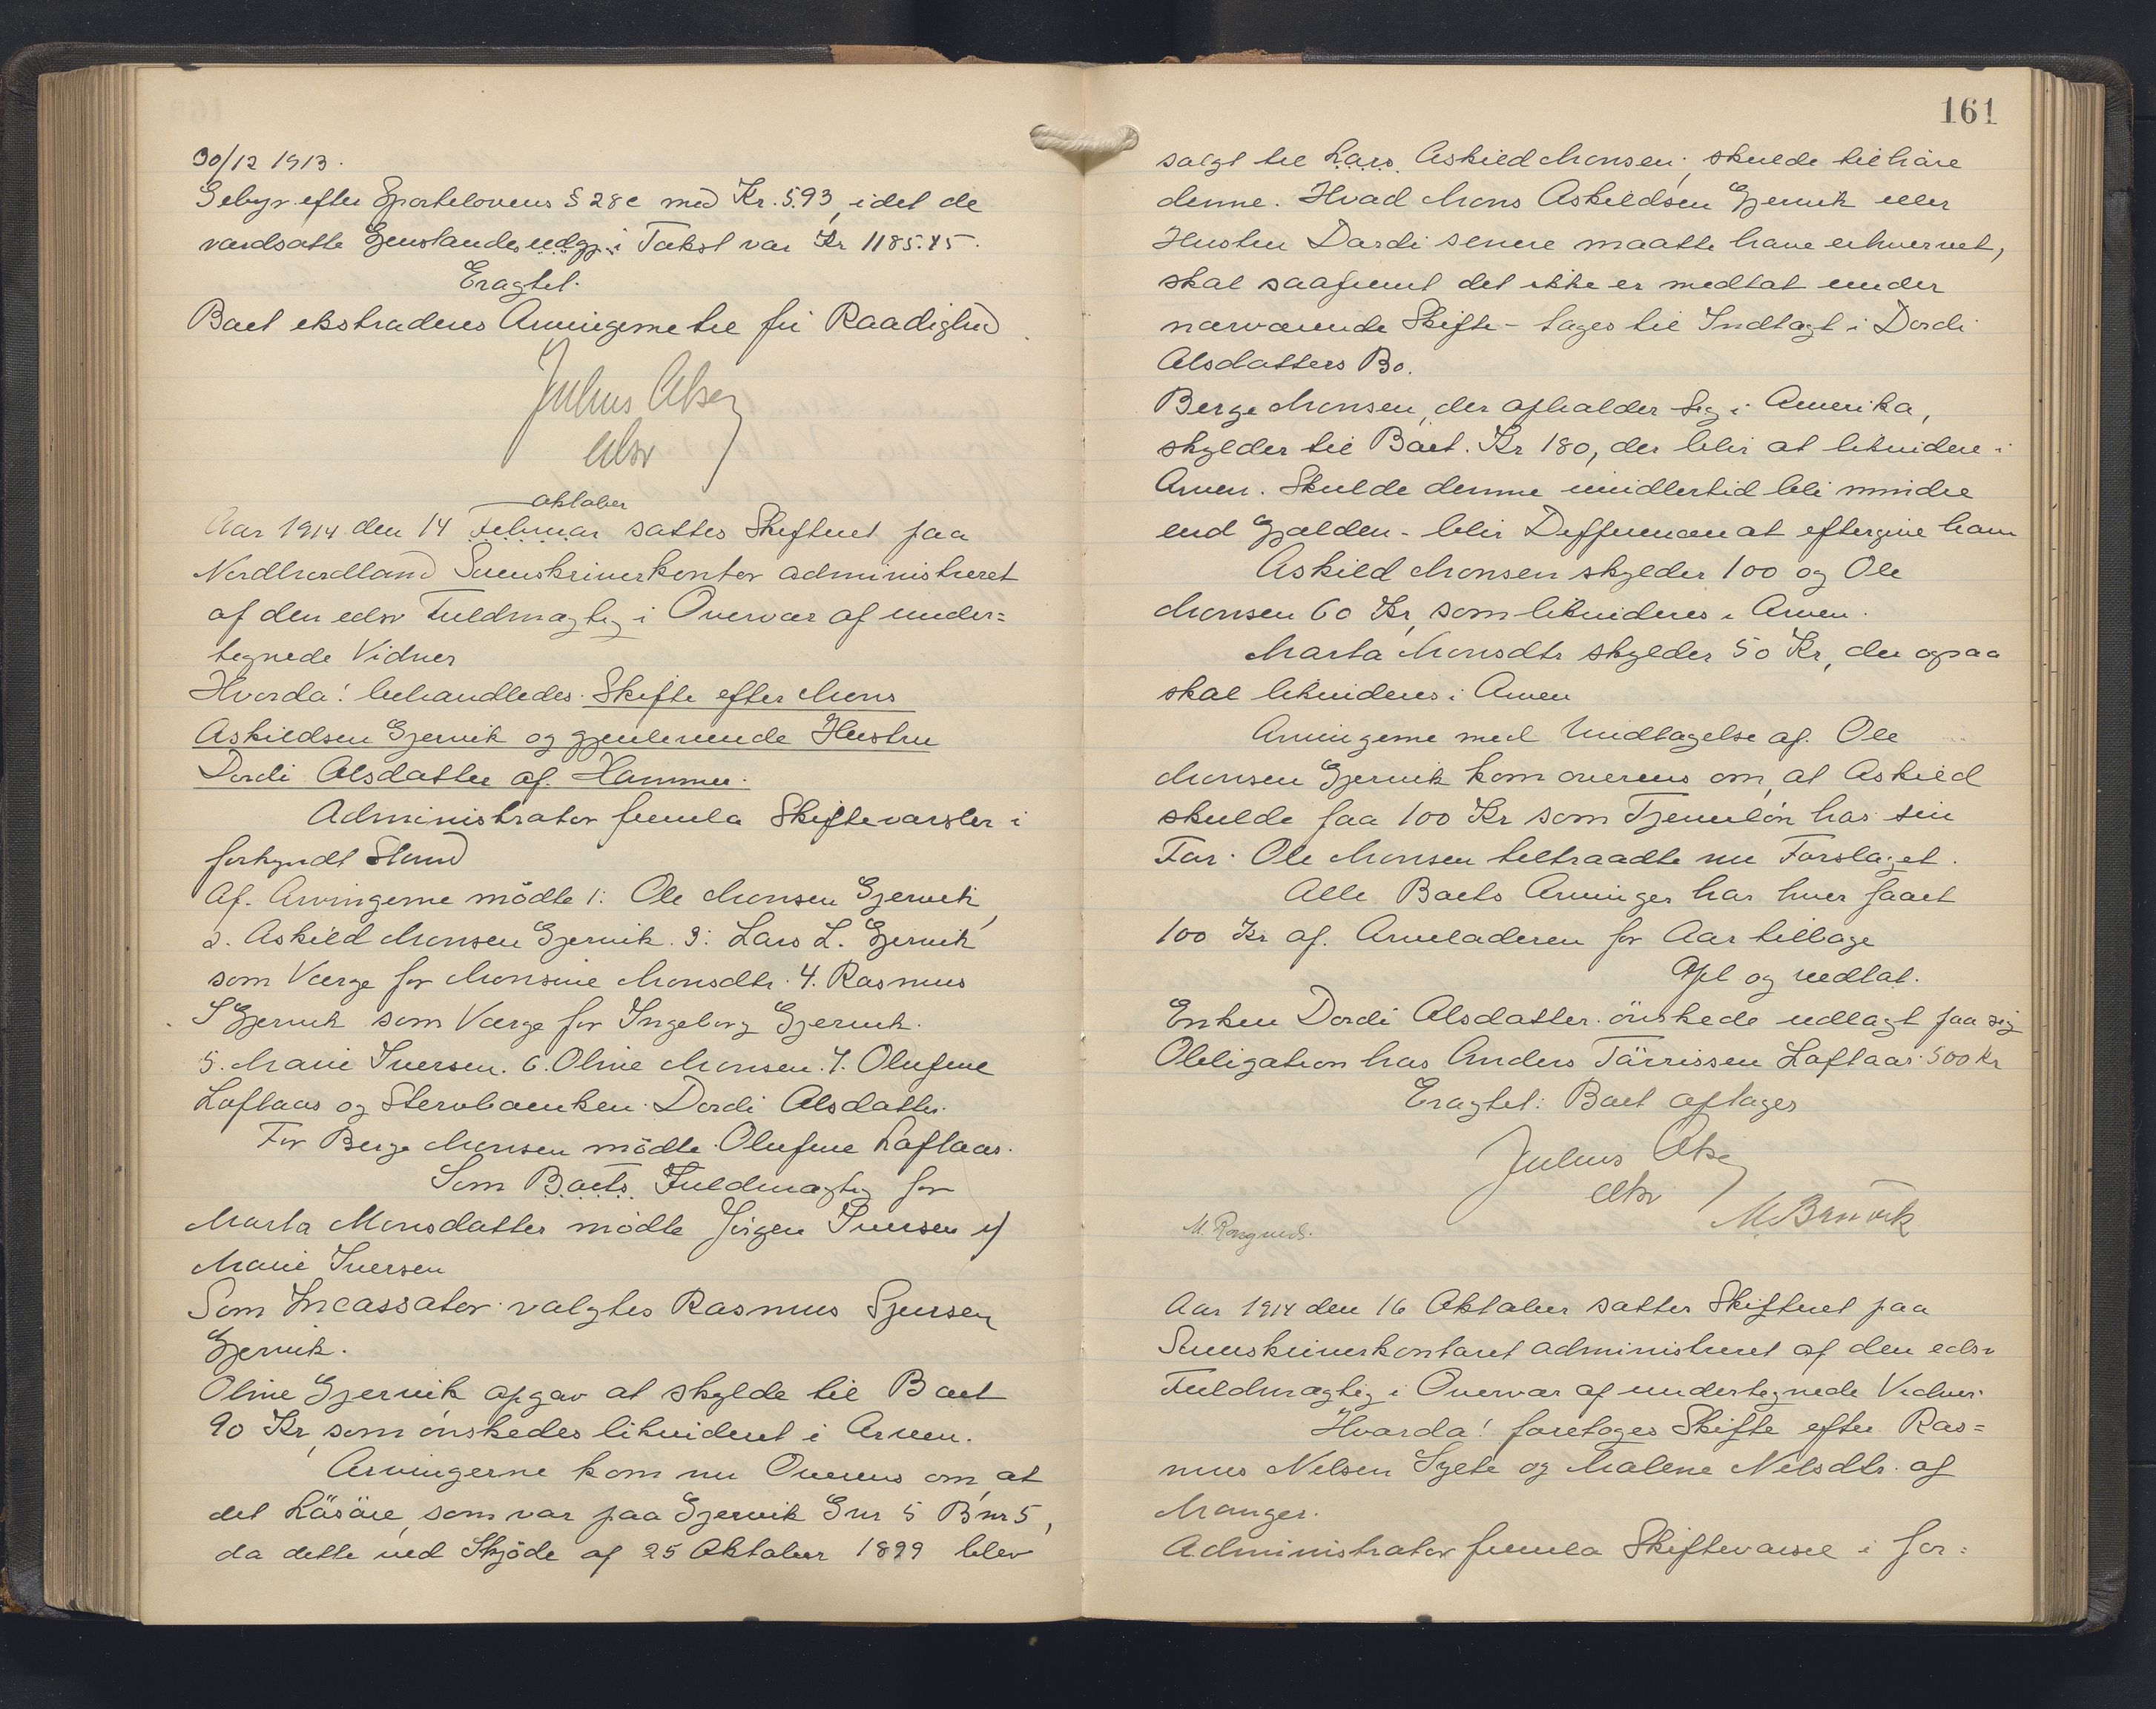 30/12 1913.
Gebyr efter Sportelovens § 28c med Kr. 5.93, idet de
værdsatte Gjenstandes udg. i Takst var Kr 1185.45.
Eragtet.
Boet ekstraderes Arvingerne til fri Raadighed
Julius Olsen
edsv
oktober
Aar 1914 den 14 Februar sattes Skifteret paa
Nordhordland Sorenskriverkontor administreret
af den edsv Fuldmægtig i Overvær af under=
tegnede Vidner
Hvorda! behandledes. Skifte efter Mons
Askildsen Gjervik og gjenlevende Hustru
Dordi Olsdatter af Hammer.
Administrator fremla Skiftevarsler i
forkyndt Stand
Af. Arvingerne mödte 1: Ole Monsen Gjervik,
2. Askild Monsen Gjervik. 3: Lars L. Gjervik
som Værge for Monsine Monsdtr. 4. Rasmus
S Gjervik som Værge for Ingeborg Gjervik.
5. Marie Iversen. 6. Oline Monsen. 7. Olufine
Loftaas og Stervboenken Dordi Olsdatter.
For Berge Monsen mödte Olufine Loftaas.
Som Boets Fuldmægtig for
Marta Monsdatter mödte Jörgen Iversen
Marie Iversen
Som Incassator valgtes Rasmus Sjursen
Gjervik.
Oline Gjervik opgav at skylde til Boet
90 Kr, som önskedes likvideret i Arven.
Arvingerne kom nu Overens om, at
det Lösöre, som var paa Gjervik Gnr 5 Bnr 5,
da dette ved Skjöde af 25 Oktober 1899 blev
161
solgt til Lars Askild Monsen, skulde tilhöre
denne. Hvad Mons Askildsen Gjervik eller
Hustru Dordi senere maatte have erhvervet,
skal saafremt det ikke er medtat under
nærværende Skifte - tages til Indtægt i Dordi
Olsdatters Bo.
Berge Monsen, der opholder sig i Amerika,
skylder til Boet. Kr 180, der blir at likvidere i
Arven. Skulde denne imidlertid bli mindre
end Gjælden - blir Differencen at eftergive ham
Askild Monsen skylder 100 og Ole
Monsen 60 Kr, som likvideres i Arven.
Marta Monsdtr skylder 50 Kr, der ogsaa
skal likvideres i Arven
Arvingerne med Undtagelse af. Ole
Monsen Gjervik kom overens om, at Askild
skulde faa 100 Kr som Tjenerlön hos sin
Far. Ole Monsen tiltraadte nu Forslaget.
Alle Boets Arvinger har hver faaet
100 Kr af. Arveladeren for Aar tilbage
Opl og vedtat.
Enken Dordi Olsdatter. önskede udlagt paa sig
Obligation hos Anders Törrissen Loftaas 500 Kr
Eragtet: Boet optages
Julius Olsen
edsv
M. Brüvik
Aar 1914 den 16 Oktober sattes Skifteret paa
Sorenskriverkontoret administreret af den edsv
Fuldmægtig i Overvær af undertegnede Vidner
Hvorda! foretoges Skifte efter Ras=
mus Nilsen Sylte og Malene Nilsdtr. af
Manger.
Administrator fremla Skiftevarsel i for=